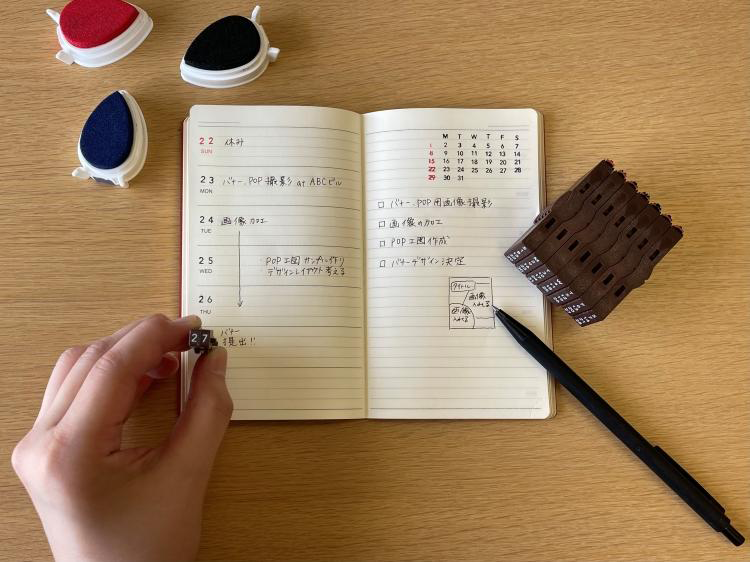 22 休み
SUN
23 バナー、POP撮影 at ABCビル
MON
24 画像加工
TUE
25 ・POP工図サンプル作り
WED ・デザインレイアウト考える
26
THU
27 バナー
提出!!
M T W T F S
1 2 3 4 5 6 7
8 9 10 11 12 13 14
15 16 17 18 19 20 21
22 23 24 25 26 27 28
29 30 31
□ バナー、POP用画像撮影
□ 画像の加工
□ POP工図作成
□ バナーデザイン決定
タイトル
画像
入れる
画像
入れる